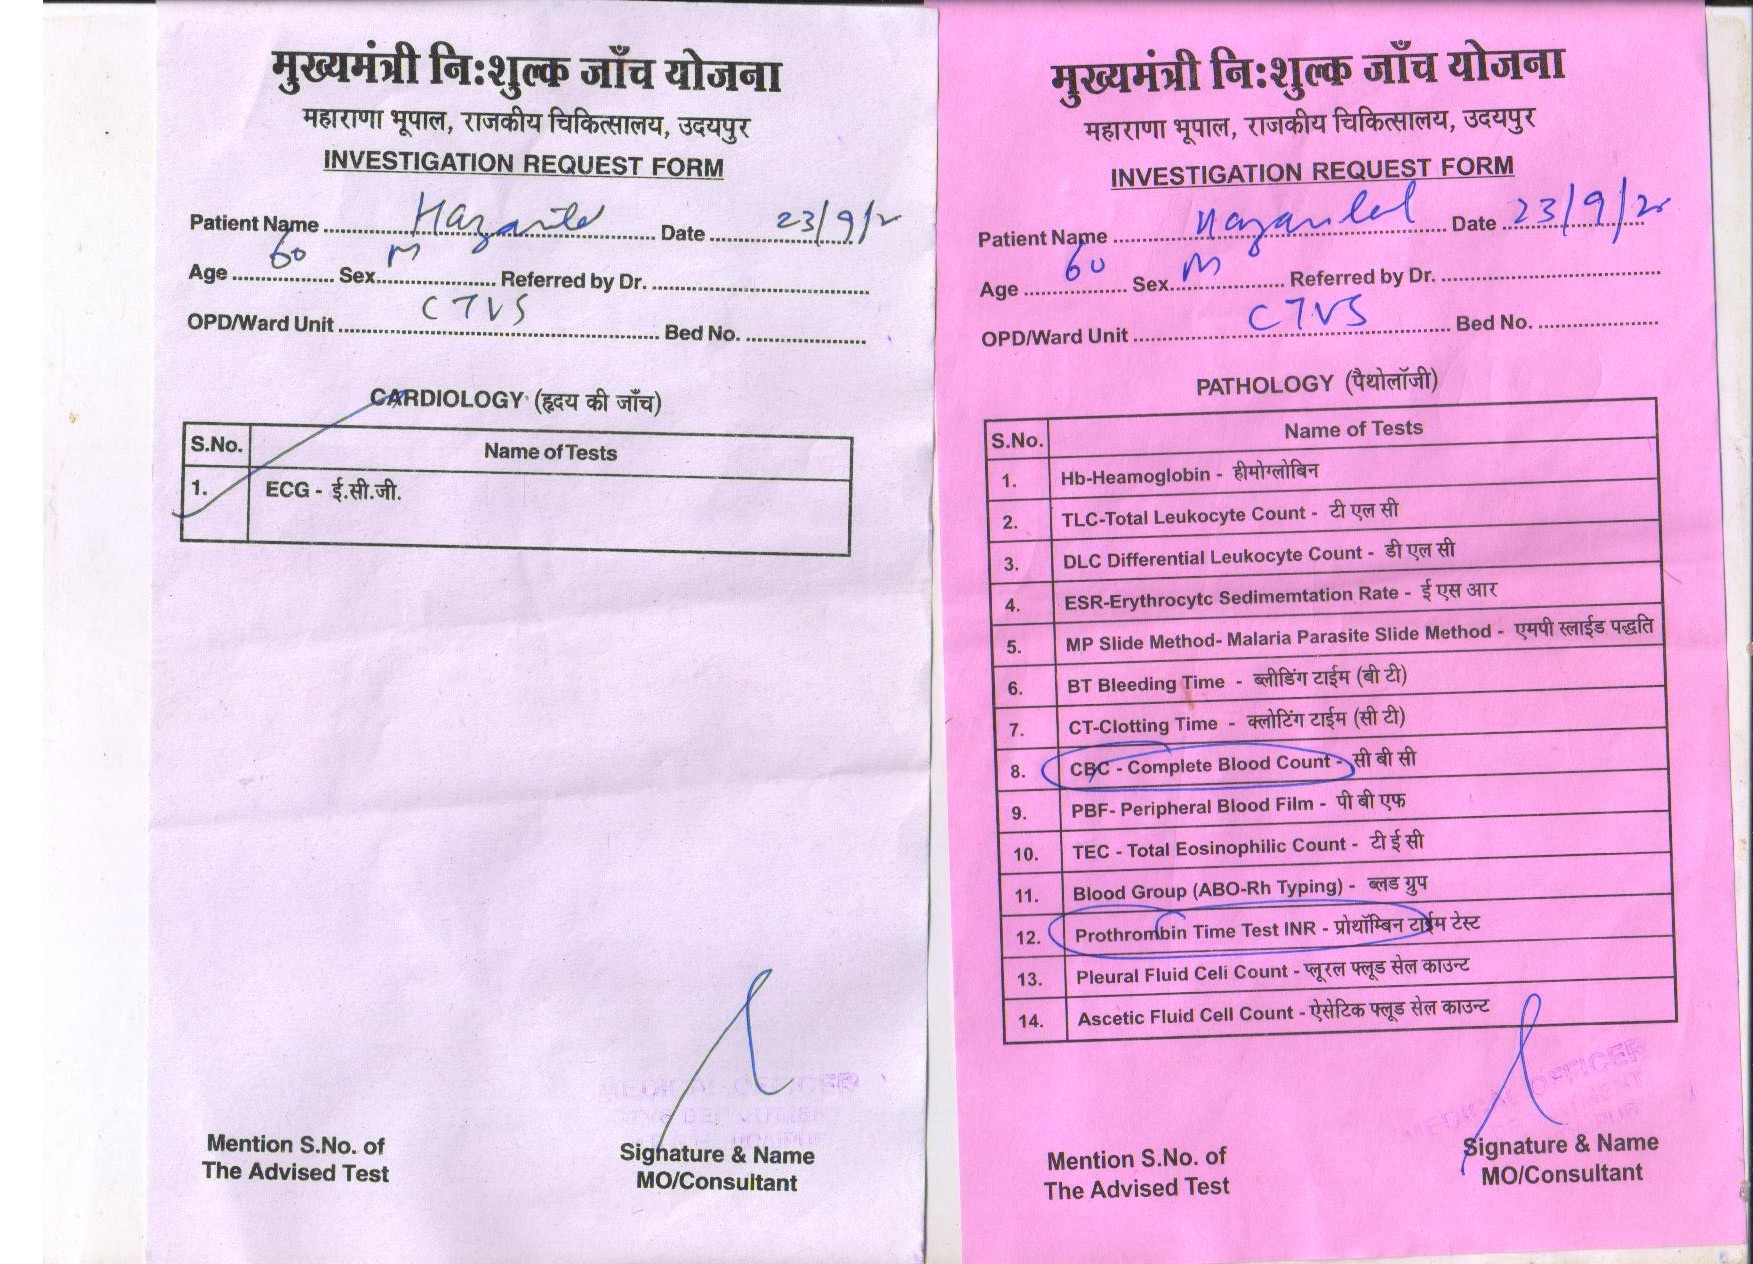 मुख्यमंत्री नि:शुल्क जाँच योजना
महाराणा भूपाल, राजकीय चिकित्सालय, उदयपुर
INVESTIGATION REQUEST FORM
Patient Name Date 23/9/2
Age 60 Sex M Referred by Dr.
OPD/Ward Unit CTVS Bed No.
CARDIOLOGY (हृदय की जाँच)
S.No. Name of Tests
1. ECG - ई.सी.जी.
Mention S.No. of
The Advised Test
Signature & Name
MO/Consultant
मुख्यमंत्री नि:शुल्क जाँच योजना
महाराणा भूपाल, राजकीय चिकित्सालय, उदयपुर
INVESTIGATION REQUEST FORM
Patient Name Date 23/9/2
Age 60 Sex M Referred by Dr.
OPD/Ward Unit CTVS Bed No.
PATHOLOGY (पैथोलॉजी)
S.No. Name of Tests
1. Hb-Heamoglobin - हीमोग्लोबिन
2. TLC-Total Leukocyte Count - टी एल सी
3. DLC Differential Leukocyte Count - डी एल सी
4. ESR-Erythrocytc Sedimemtation Rate - ई एस आर
5. MP Slide Method- Malaria Parasite Slide Method - एमपी स्लाईड पद्धति
6. BT Bleeding Time - ब्लीडिंग टाईम (बी टी)
7. CT-Clotting Time - क्लोटिंग टाईम (सी टी)
8. CBC - Complete Blood Count - सी बी सी
9. PBF- Peripheral Blood Film - पी बी एफ
10. TEC - Total Eosinophilic Count - टी ई सी
11. Blood Group (ABO-Rh Typing) - ब्लड ग्रुप
12. Prothrombin Time Test INR - प्रोथॉम्बिन टाईम टेस्ट
13. Pleural Fluid Celi Count - प्लूरल फ्लूड सेल काउन्ट
14. Ascetic Fluid Cell Count - ऐसेटिक फ्लूड सेल काउन्ट
MEDICAL OFFICER
Mention S.No. of
The Advised Test
Signature & Name
MO/Consultant